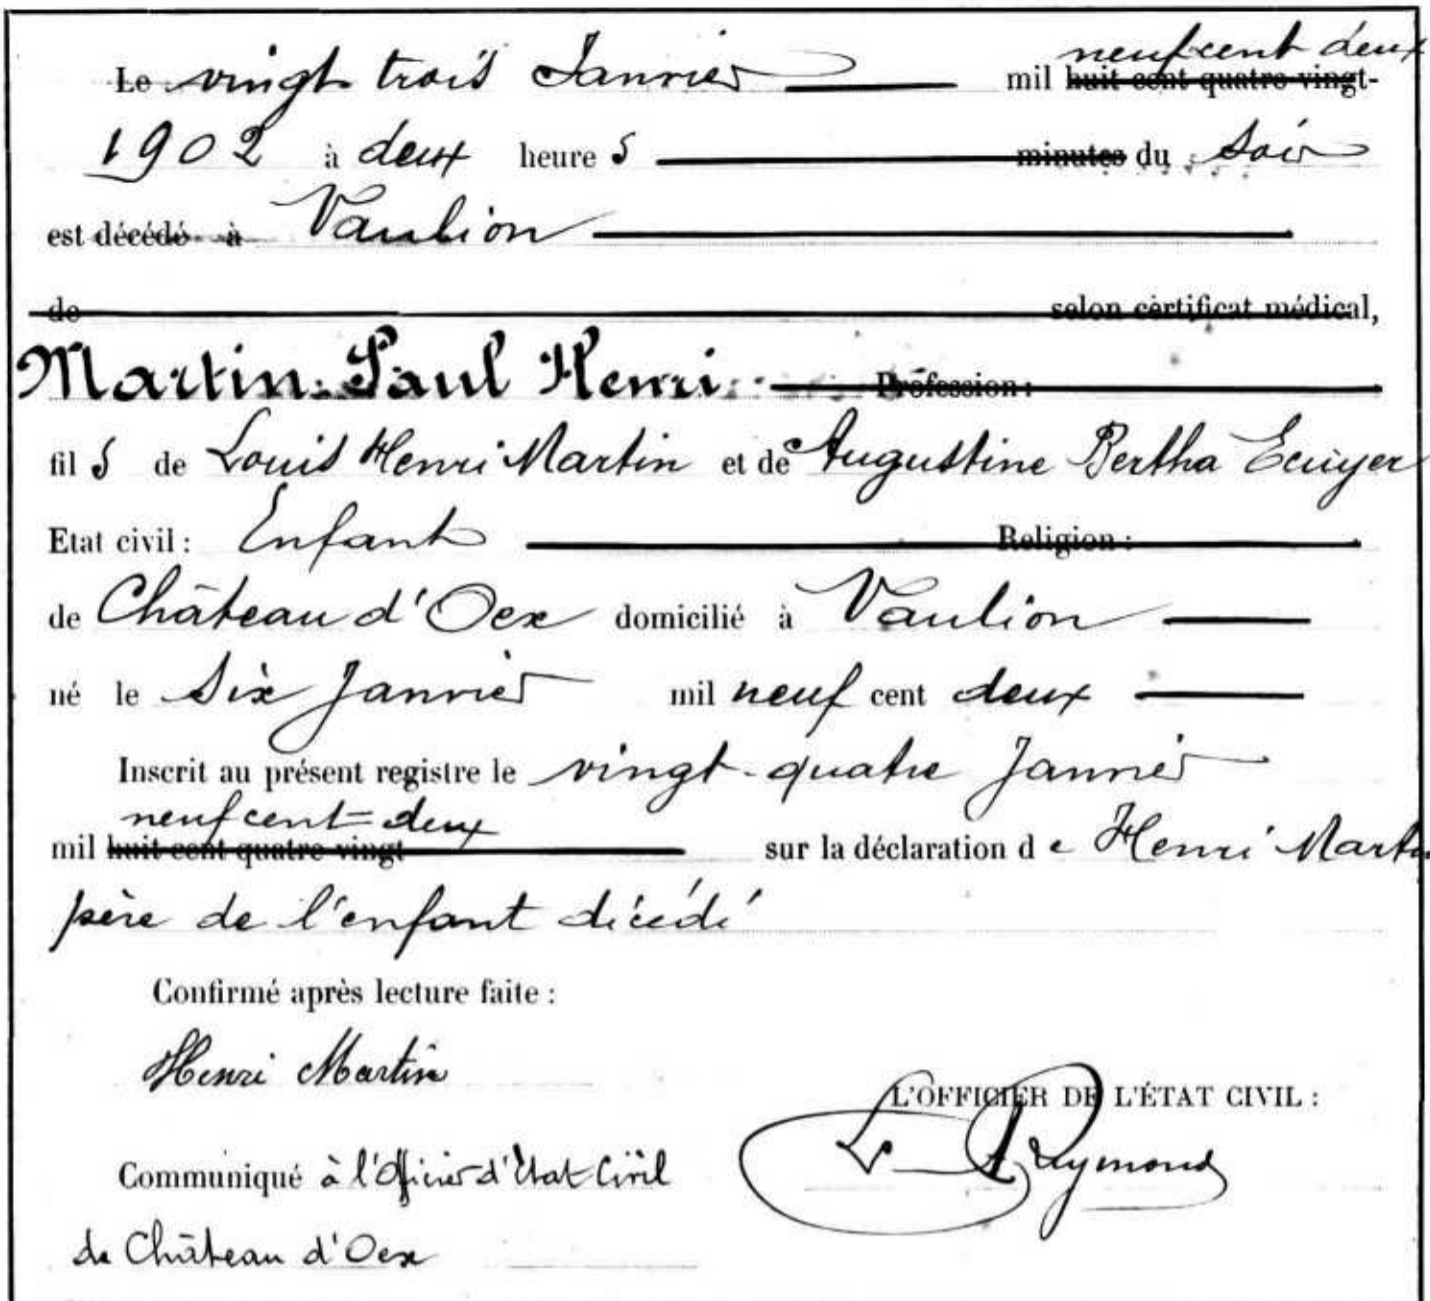 Le vingt trois Janvier mil huit cent quatre vingt- neuf cent deux
1902 à deux heure s minutes du soir
est décédé à Vaulion
de selon certificat médical,
Martin Paul Henri Profession :
fil s de Louis Henri Martin et de Augustine Bertha Ecuyer
Etat civil : Enfant Religion :
de Château d'Oex domicilié à Vaulion
né le six Janvier mil neuf cent deux
Inscrit au présent registre le vingt-quatre Janvier
neuf cent=deux
mil huit cent quatre vingt sur la déclaration d e Henri Martin
père de l'enfant décédé
Confirmé après lecture faite :
Henri Martin
L'OFFICIER DE L'ÉTAT CIVIL :
L. Reymond
Communiqué à l'Officier d'Etat Civil
de Château d'Oex